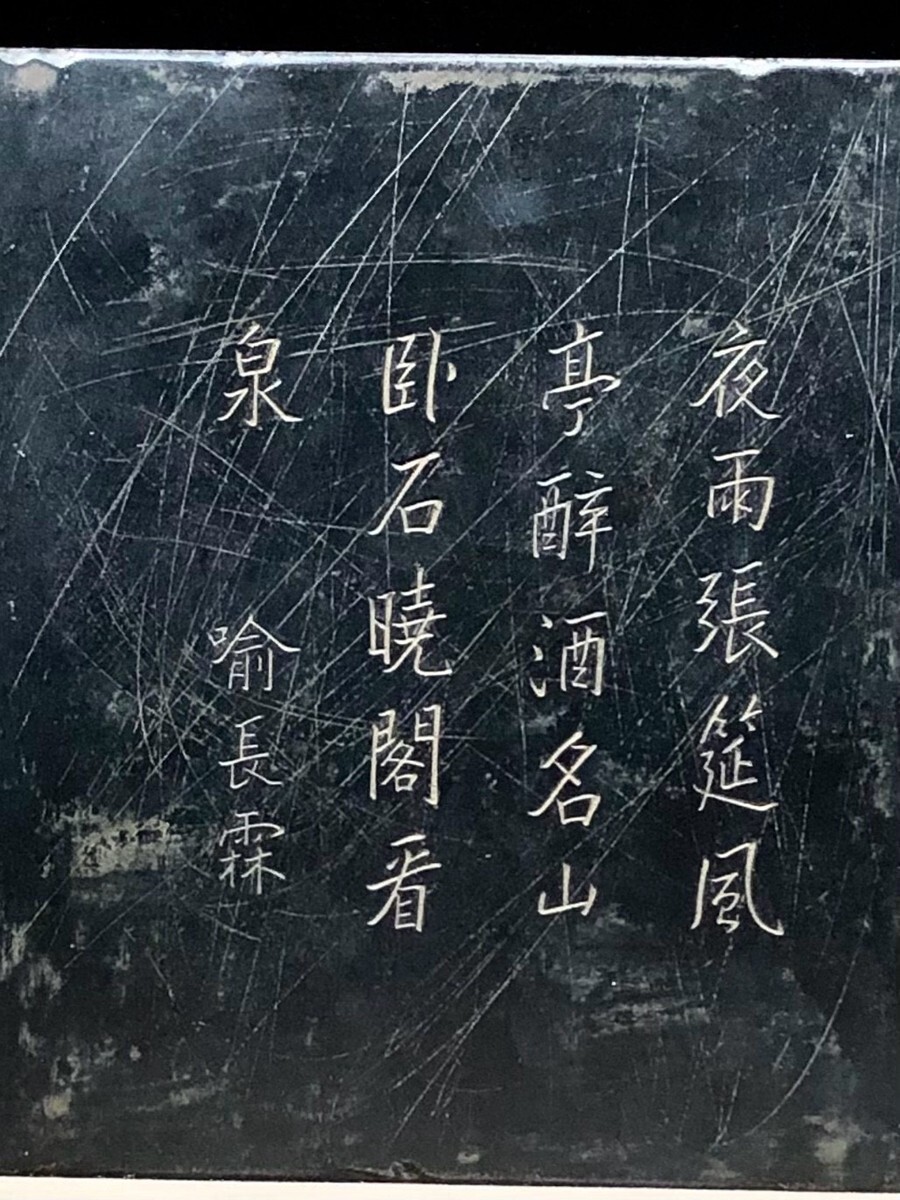 夜雨張筵風
亭醉酒名山
臥石曉閣看
泉
喻長霖